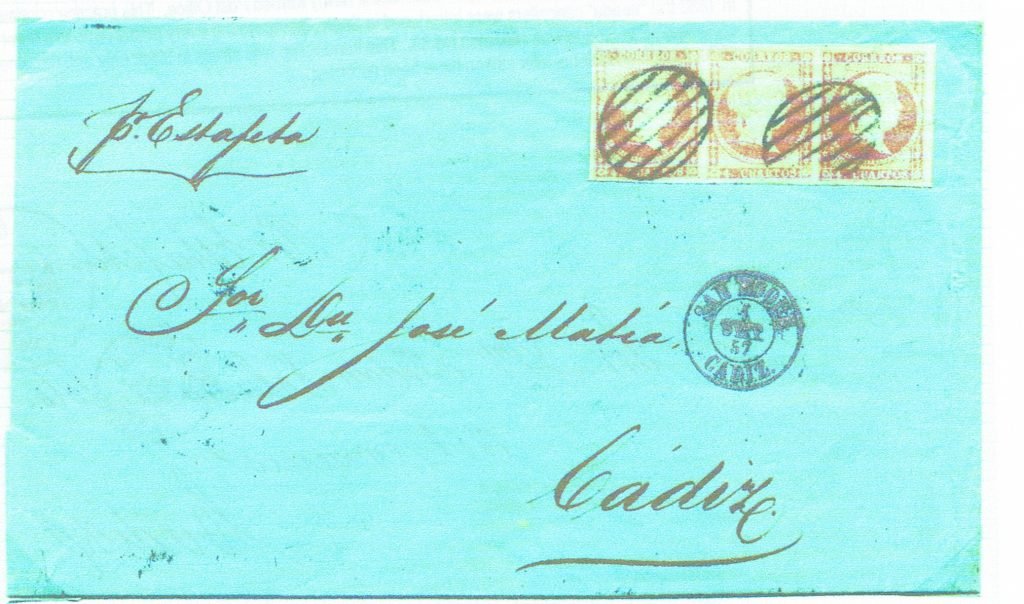 CORREOS CORREOS CORREOS
4. CUARTOS 4. CUARTOS 4. CUARTOS
pr. Estafeta
Sor Dn José Matiá.
57
CADIZ.
Cádiz.